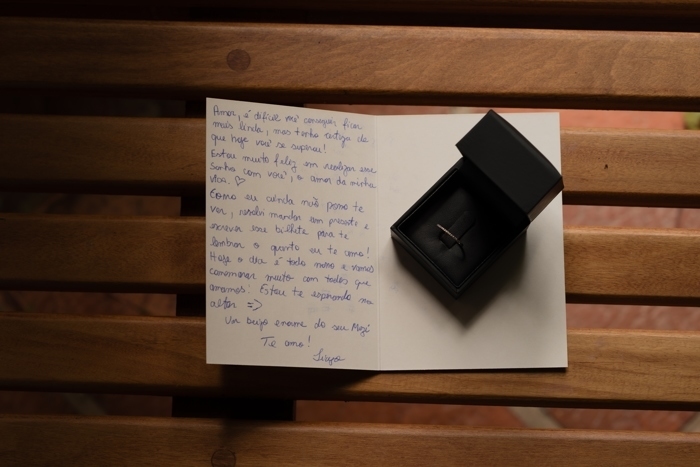 Amor, é difícil você conseguir ficar
mais linda, mas tenho certeza de
que hoje você se superou!
Estou muito feliz em realizar esse
sonho com você, o amor da minha
vida. ♡
Como eu ainda não posso te
ver, resolvi mandar um presente e
escrever esse bilhete para te
lembrar o quanto eu te amo!
Hoje o dia é todo nosso e vamos
comemorar muito com todos que
amamos! Estou te esperando no
altar =>
Um beijo enorme do seu Mozi
Te amo!